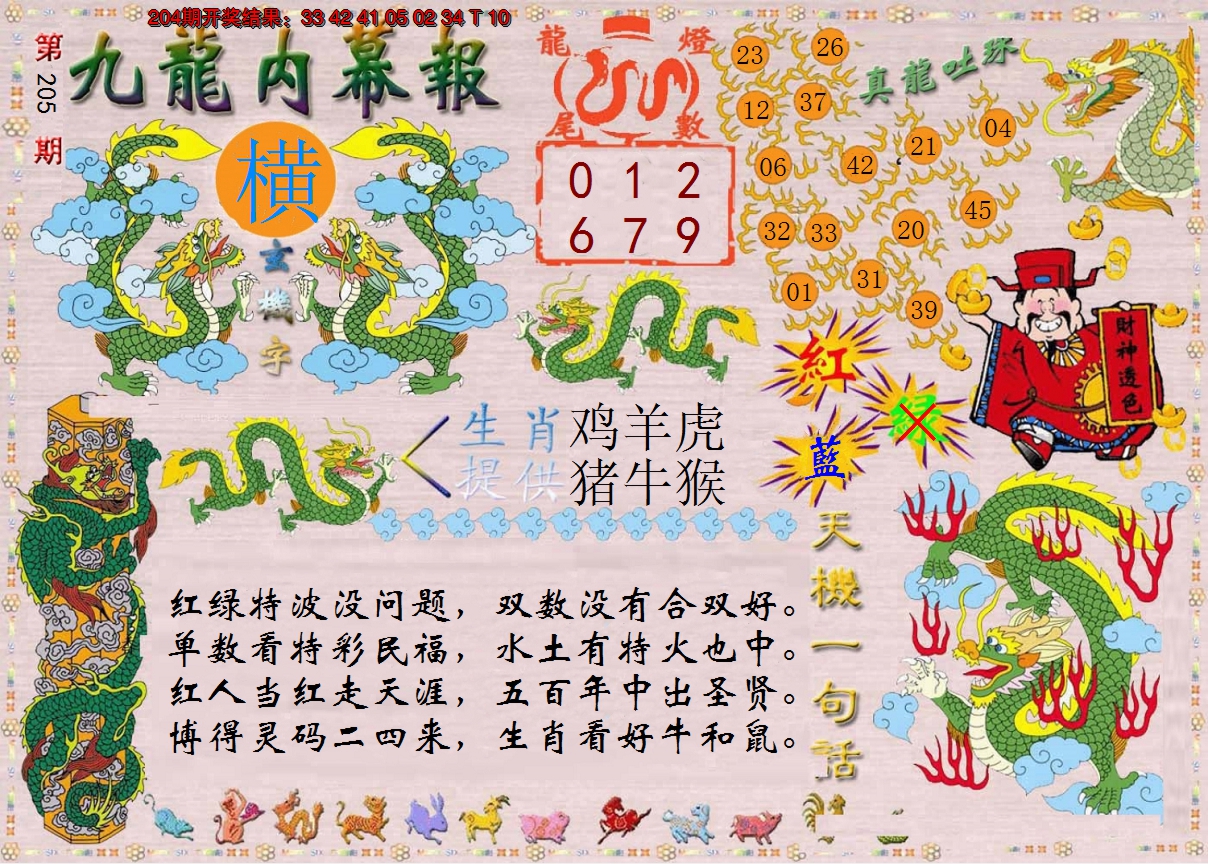 204期开奖结果：33 42 41 05 02 34 T 10
第205期
九龍内幕報
横
玄機字
龍燈尾數
0 1 2
6 7 9
真龍吐珠
23
26
12
37
04
21
06
42
45
32
33
20
31
01
39
紅
绿
藍
財神透色
生肖 鸡羊虎
提供 猪牛猴
天機一句話
红绿特波没问题，双数没有合双好。
单数看特彩民福，水土有特火也中。
红人当红走天涯，五百年中出圣贤。
博得灵码二四来，生肖看好牛和鼠。